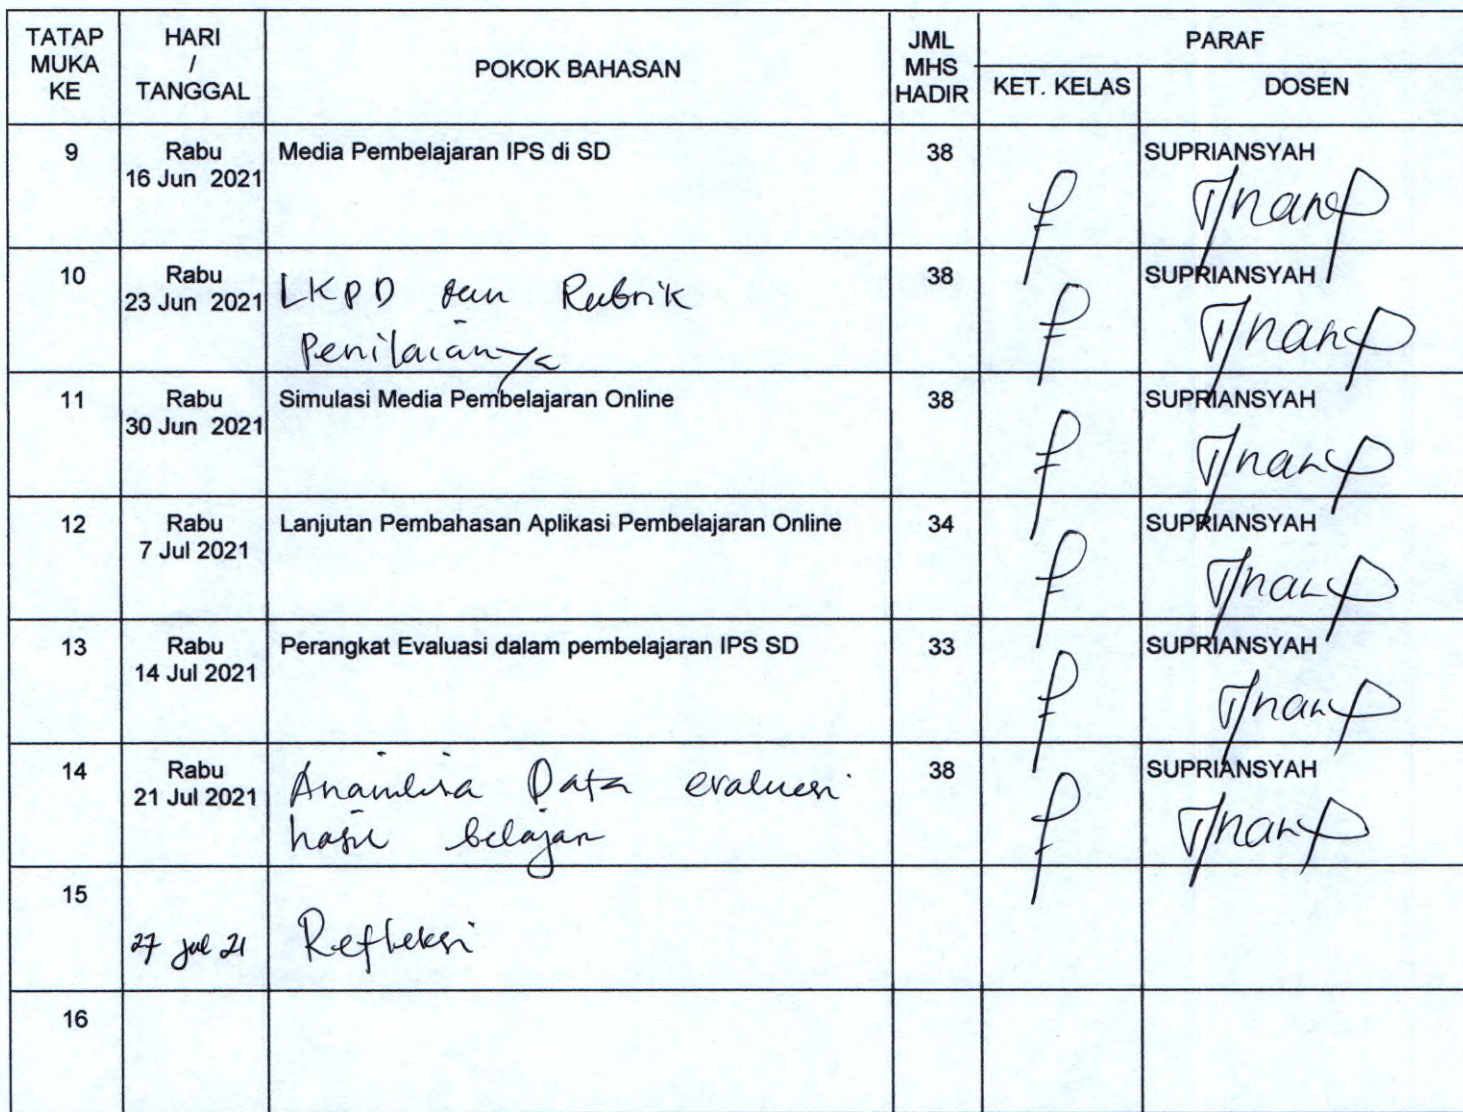 TATAP MUKA KE
HARI / TANGGAL
POKOK BAHASAN
JML MHS HADIR
PARAF
KET. KELAS
DOSEN
9
Rabu
16 Jun 2021
Media Pembelajaran IPS di SD
38
SUPRIANSYAH
10
Rabu
23 Jun 2021
LKPD dan Rubrik
Penilaianya
38
SUPRIANSYAH
11
Rabu
30 Jun 2021
Simulasi Media Pembelajaran Online
38
SUPRIANSYAH
12
Rabu
7 Jul 2021
Lanjutan Pembahasan Aplikasi Pembelajaran Online
34
SUPRIANSYAH
13
Rabu
14 Jul 2021
Perangkat Evaluasi dalam pembelajaran IPS SD
33
SUPRIANSYAH
14
Rabu
21 Jul 2021
Data evaluasi
hasil belajar
38
SUPRIANSYAH
15
27 Jul 21
Refleksi
16